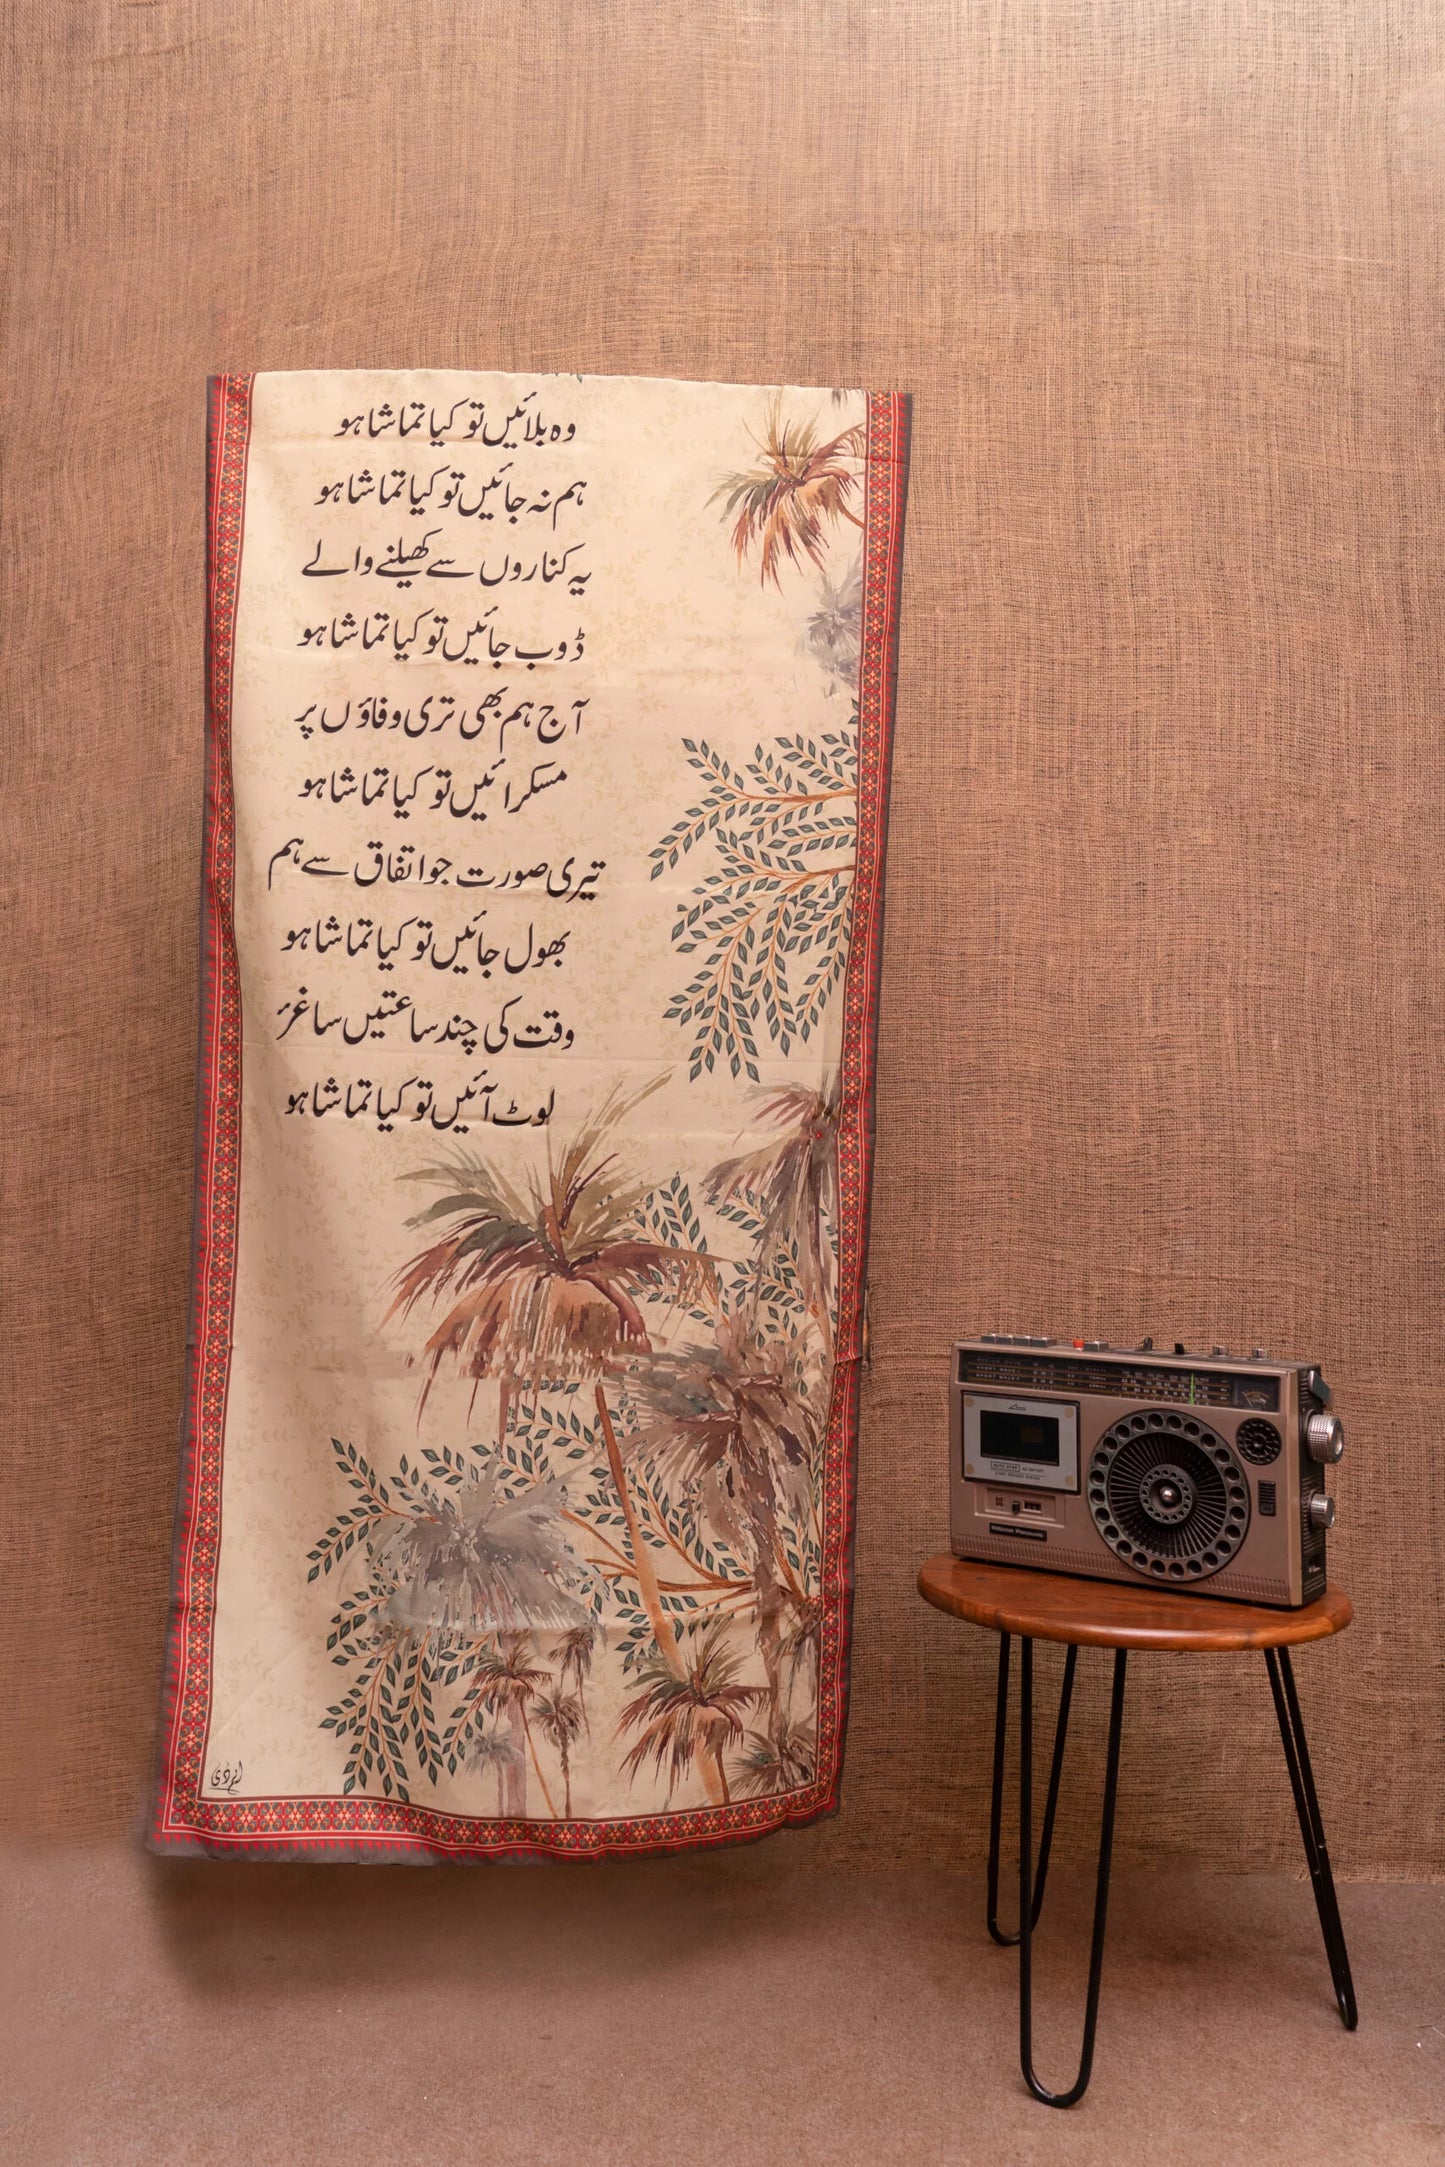 وہ بلائیں تو کیا تماشا ہو
ہم نہ جائیں تو کیا تماشا ہو
یہ کناروں سے کھیلنے والے
ڈوب جائیں تو کیا تماشا ہو
آج ہم بھی تری وفاؤں پر
مسکرائیں تو کیا تماشا ہو
تیری صورت جو اتفاق سے ہم
بھول جائیں تو کیا تماشا ہو
وقت کی چند ساعتیں ساغرؔ
لوٹ آئیں تو کیا تماشا ہو
AUTO STOP
National Panasonic